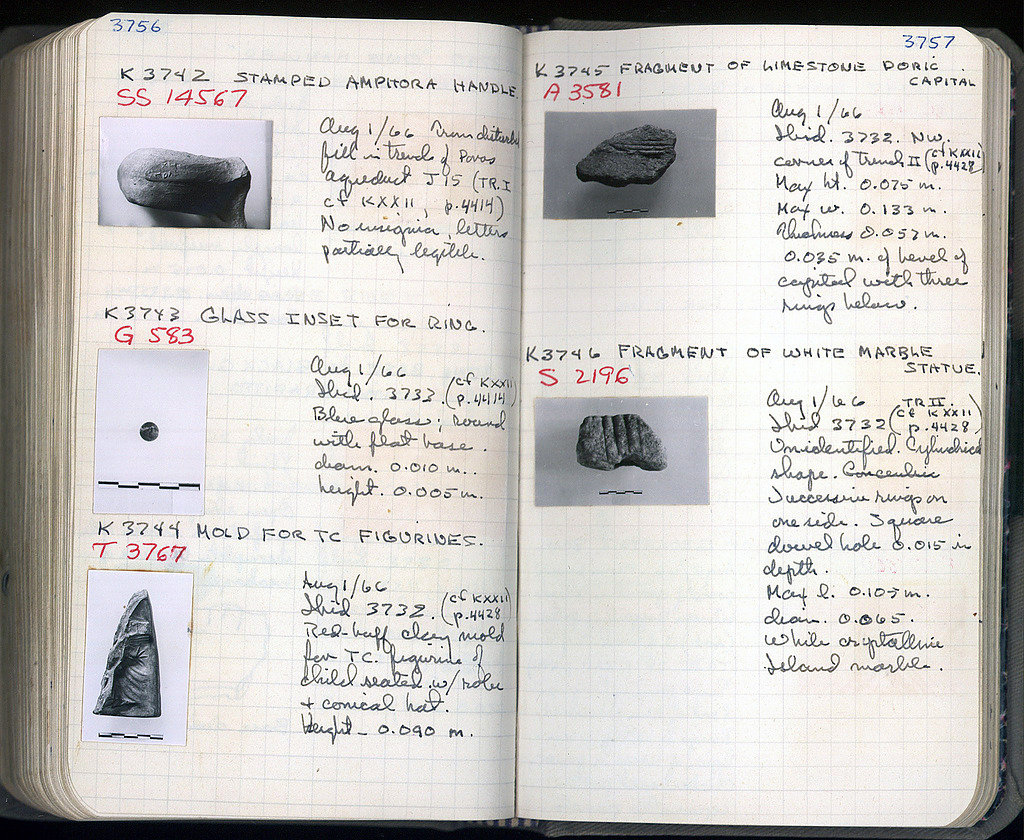 3756
K 3742 STAMPED AMPHORA HANDLE.
SS 14567
Aug 1/66 From disturbed
fill in trench of Poros
aqueduct J 15 (TR. I
cf KXXII, p. 4414)
No insignia, letters
partially legible.
K 3743 GLASS INSET FOR RING.
G 583
Aug 1/66
Ibid. 3733. (cf KXXII
p. 4414)
Blue glass; round
with flat base.
diam. 0.010 m..
height. 0.005 m.
K 3744 MOLD FOR TC FIGURINES.
T 3767
Aug 1/66
Ibid 3732. (cf KXXII
p. 4428)
Red-buff clay mold
for TC. figurine of
child seated w/ robe
+ conical hat.
Height - 0.090 m.
3757
K 3745 FRAGMENT OF LIMESTONE DORIC
CAPITAL
A 3581
Aug 1/66
Ibid. 3732. NW.
corner of Trench II (cf KXXII
p. 4428)
Max ht. 0.075 m.
Max w. 0.133 m.
Thickness 0.057 m.
0.035 m. of bevel of
capital with three
rings below.
K 3746 FRAGMENT OF WHITE MARBLE
STATUE.
S 2196
Aug 1/66 TR II.
Ibid 3732 (cf KXXII
p. 4428)
Unidentified. Cylindrical
shape. Concentric
Successive rings on
one side. Square
dowel hole 0.015 in
depth.
Max l. 0.105 m.
diam. 0.065.
White crystalline
Island marble.